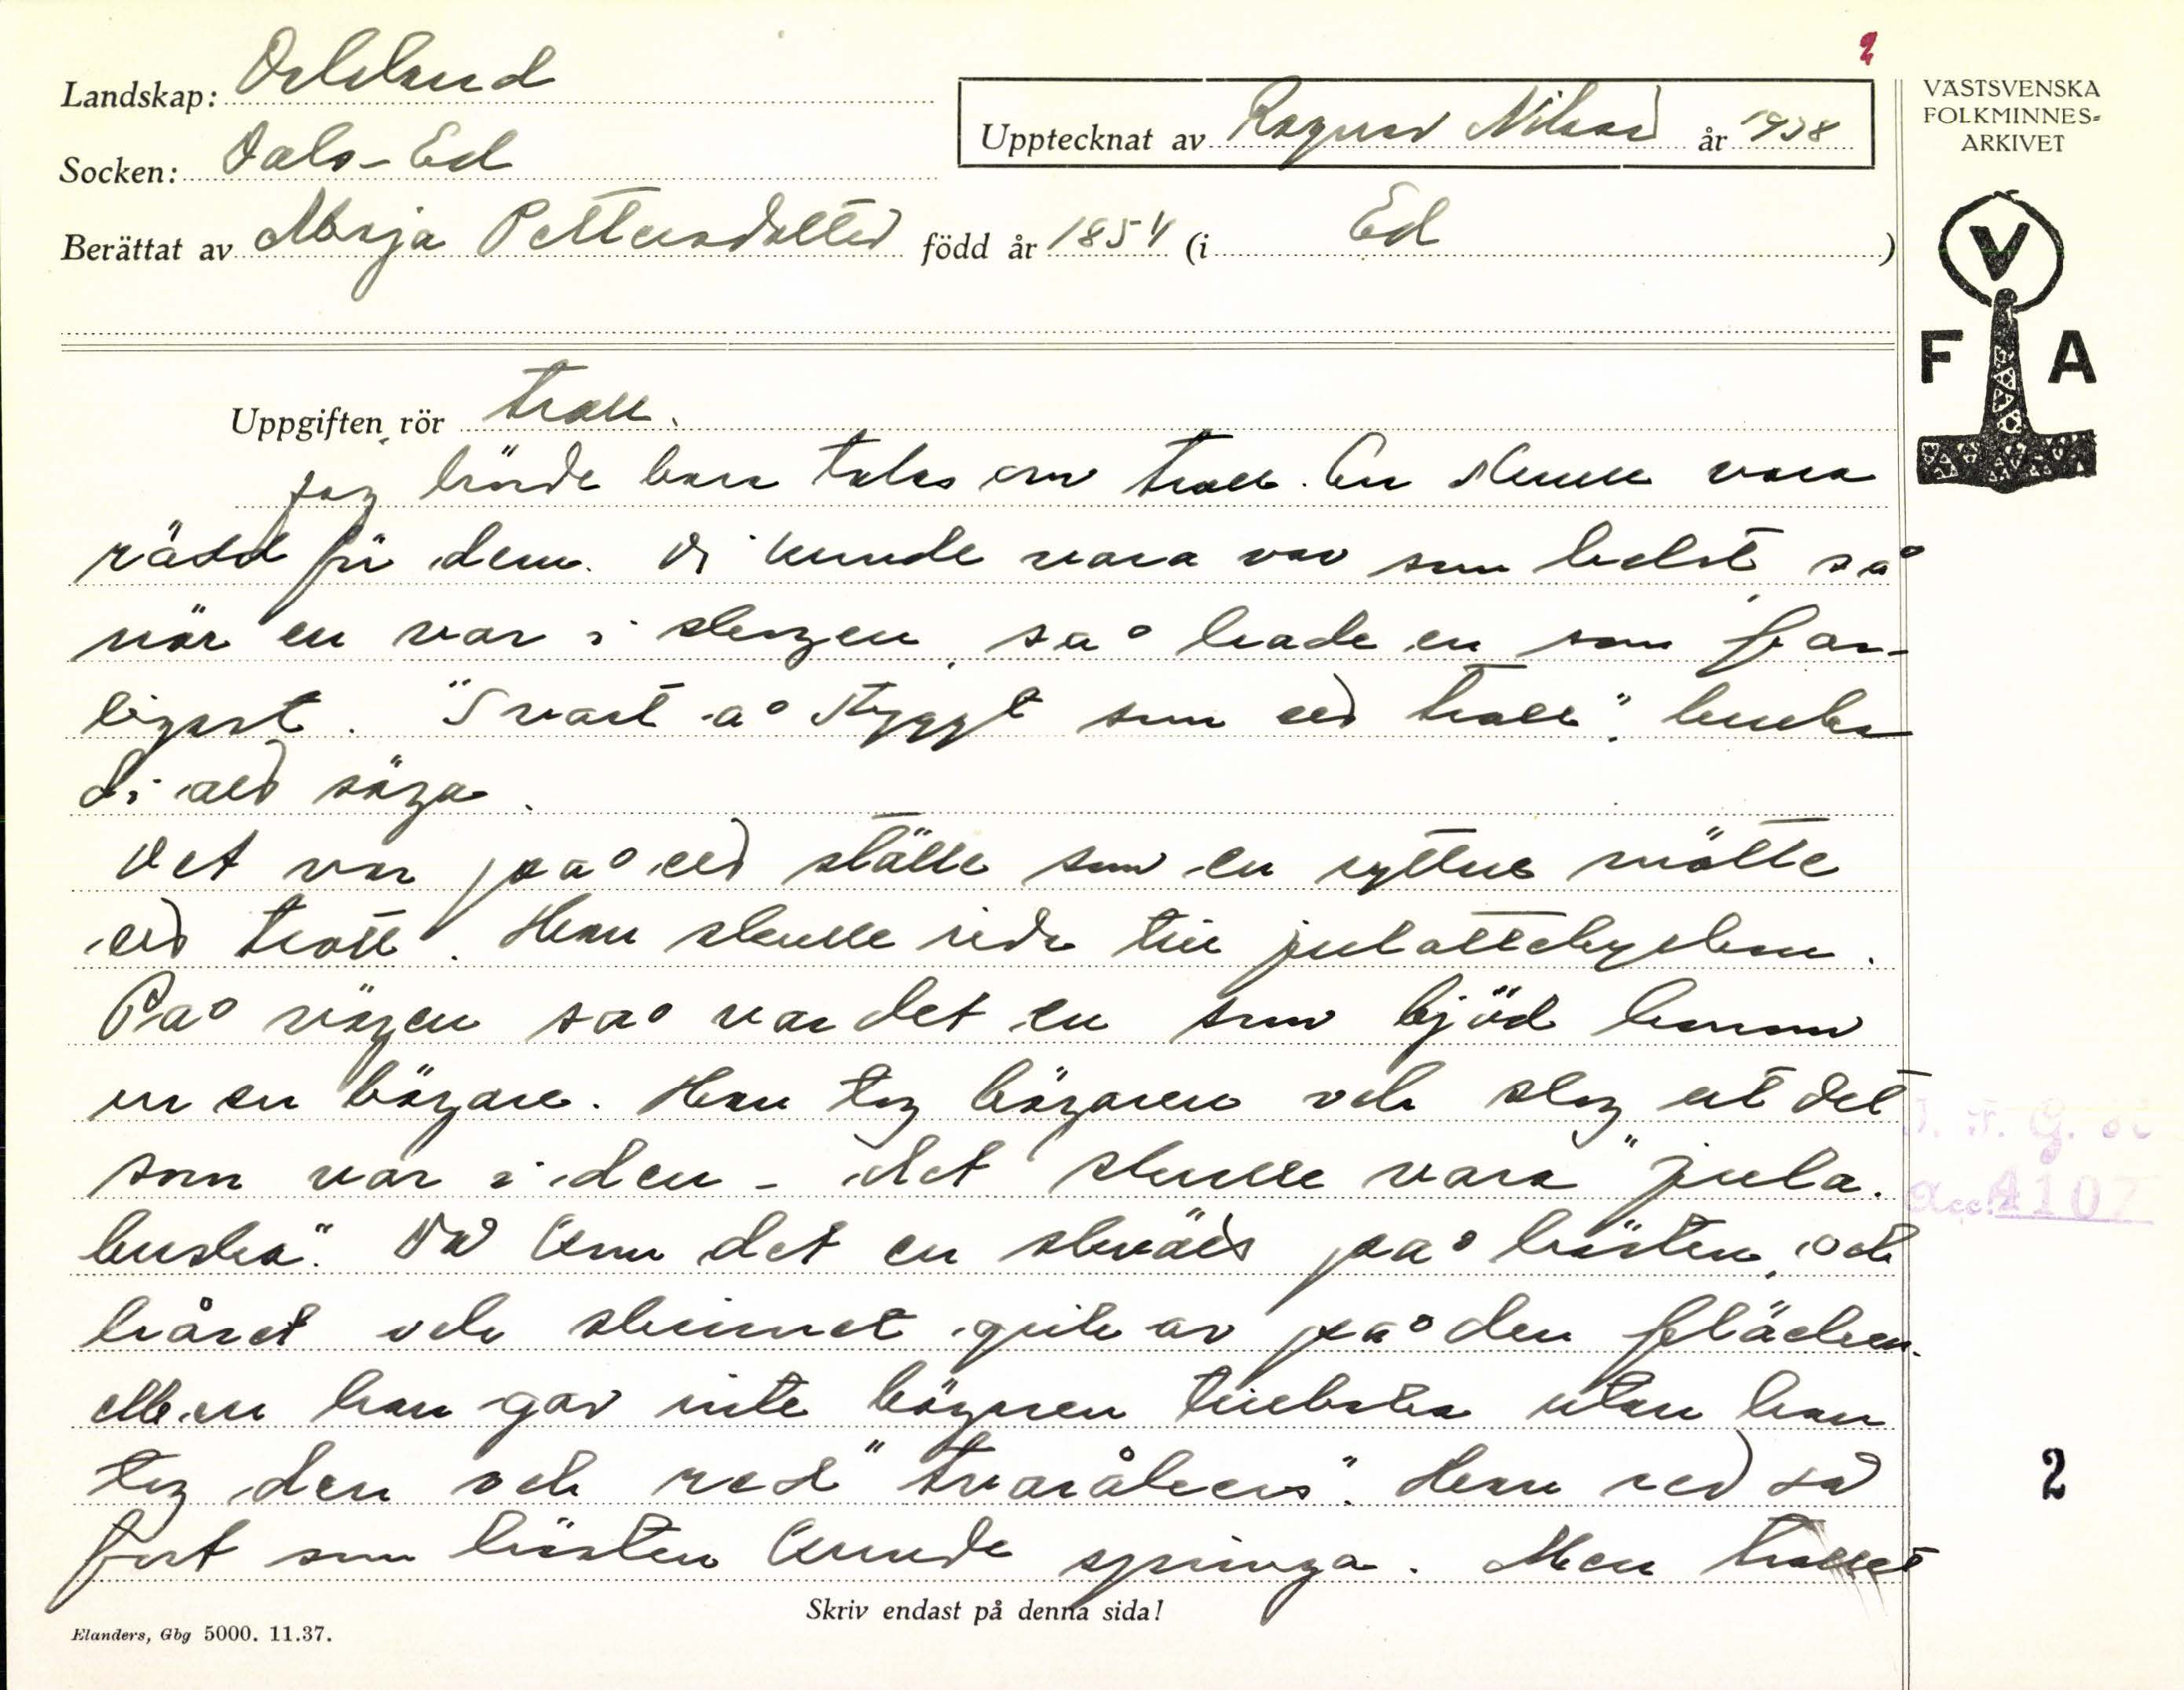 2
Landskap: Dalsland
Upptecknat av Ragnar Nilsson år 1938
VÄSTSVENSKA
FOLKMINNES=
ARKIVET
Socken: Dals-Ed
Berättat av Maja Pettersdotter född år 1854 (i Ed )
V
F A
Uppgiften rör troll.
Jag hörde bara talas om troll. En skulle vara
rädd för dem. Di kunde vara var som helst, så
när en var i skogen, så hade en som far-
ligast. "Svart å styggt som ett troll", bruka
di att säga.
Det var på ett ställe som en ryttare mötte
ett troll. Han skulle rida till julottekyrkan.
På vägen så var det en som bjöd honom
ur en bägare. Han tog bägaren och slog ut det
som var i den - det skulle vara "jula-
buska". Då kom det en skvätt på hästen, och
håret och skinnet gick av på den fläcken.
Men han gav inte bägaren tillbaka utan han
tog den och red "tvaråkers". Han red så
fort som hästen kunde springa. Men trollet
I. F. G. s:
Acc. 4107
2
Skriv endast på denna sida!
Elanders, Gbg 5000. 11.37.